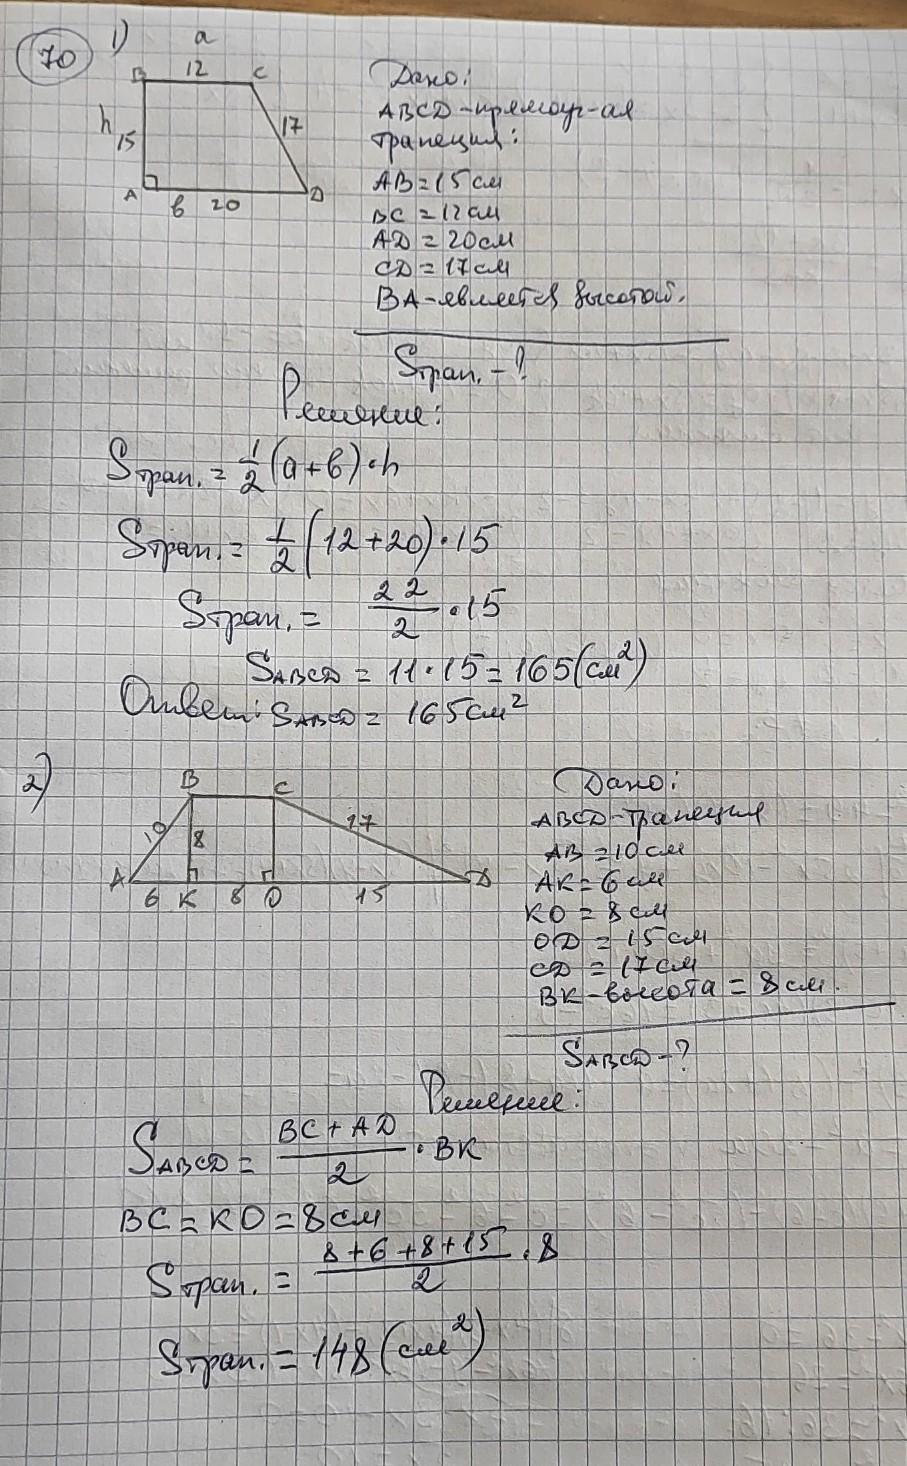 70
1)
a
B 12 C
h 15
17
A в 20 D
Дано:
ABCD-прямоуг-ая
трапеция:
AB=15см
BC=12см
AD=20см
CD=17см
BA-является высотой.
Sтрап.-?
Решение:
Sтрап.=1/2(a+в)·h
Sтрап.=1/2(12+20)·15
Sтрап.=22/2·15
SABCD=11·15=165(см²)
Ответ: SABCD=165см²
2)
B C
10 8 17
A 6 K 8 O 15 D
Дано:
ABCD-трапеция
AB=10см
AK=6см
KO=8см
OD=15см
CD=17см
BK-высота=8см.
SABCD-?
Решение:
SABCD=BC+AD/2·BK
BC=KO=8см
Sтрап.=8+6+8+15/2·8
Sтрап.=148(см²)